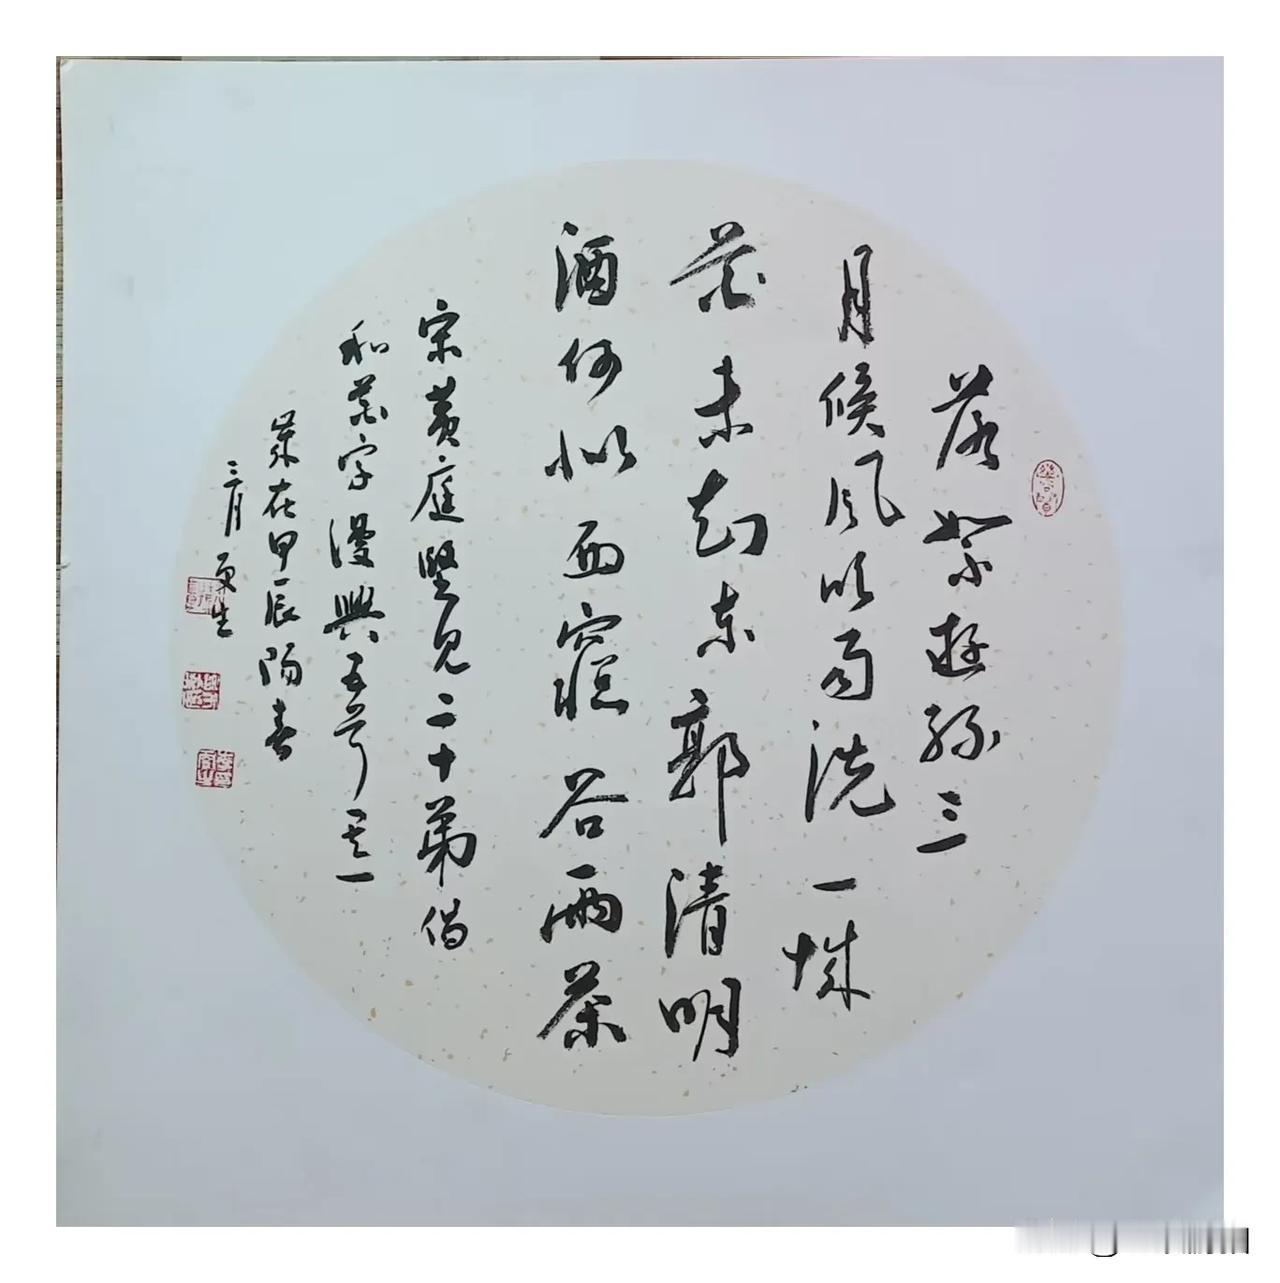 落絮遊絲三
月候風吹雨洗一城
花未知東郭清明
酒何似西窗谷雨茶
宋黄庭堅見二十弟倡
和花字漫興五首其一
歲在甲辰陽春
三月更生